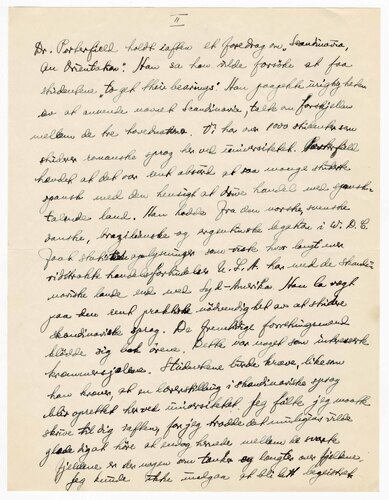 11
Dr. Porterfield holdt saften et foredrag om „Scandinavia,
an Orientation". Han sa han vilde forsöke at faa
studentene „to get their bearings". Han paapekte urigtigheten
av at anvende navnet Scandinavia, talte om forskjellen
mellem de tre landene. Vi har over 1000 studenter som
studerer romanske sprog her ved universitetet. Porterfield
hevdet at det var rent absurd at saa mange studerte
spansk med den hensigt at drive handel med spansk-
talende land. Han hadde fra den norske, svenske
danske, brazilianske og argentinske legation i W. D. C.
faat statistiske oplysninger som viste hvor langt mer
vidstrakte handelsforbindelser U.S.A. har med de skandi-
naviske lande end med Syd-Amerika. Han la vegt
paa den rent praktiske nödvendighet av at studere
skandinaviske sprog. De fremtidige forretningsmænd
klödde sig bak örene. Dette var noget som interesserte
kræmmersjælene. Studentene burde kræve, likesom
han kræver, at en lærerstilling i skandinaviske sprog
blir oprettet her ved universitetet. Jeg fölte jeg maatte
skrive til dig iaften, for jeg trodde det muligens vilde
glæde dig at höre at endog hernede mellem de svarte
fjellene er der nogen som tænker og længter over fjellene.
Jeg kunde ikke undgaa at bli litt begeistret